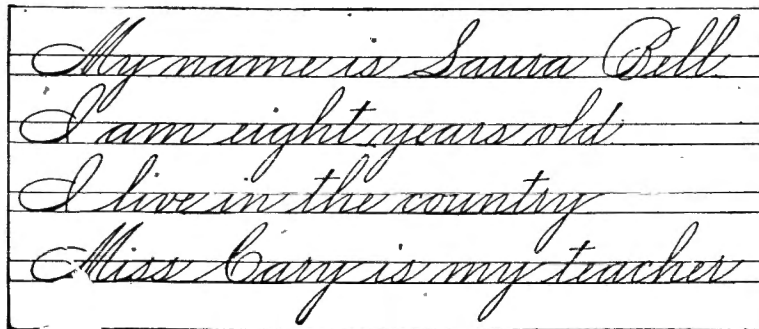 My name is Laura Bell
I am eight years old
I live in the country
Miss Cary is my teacher